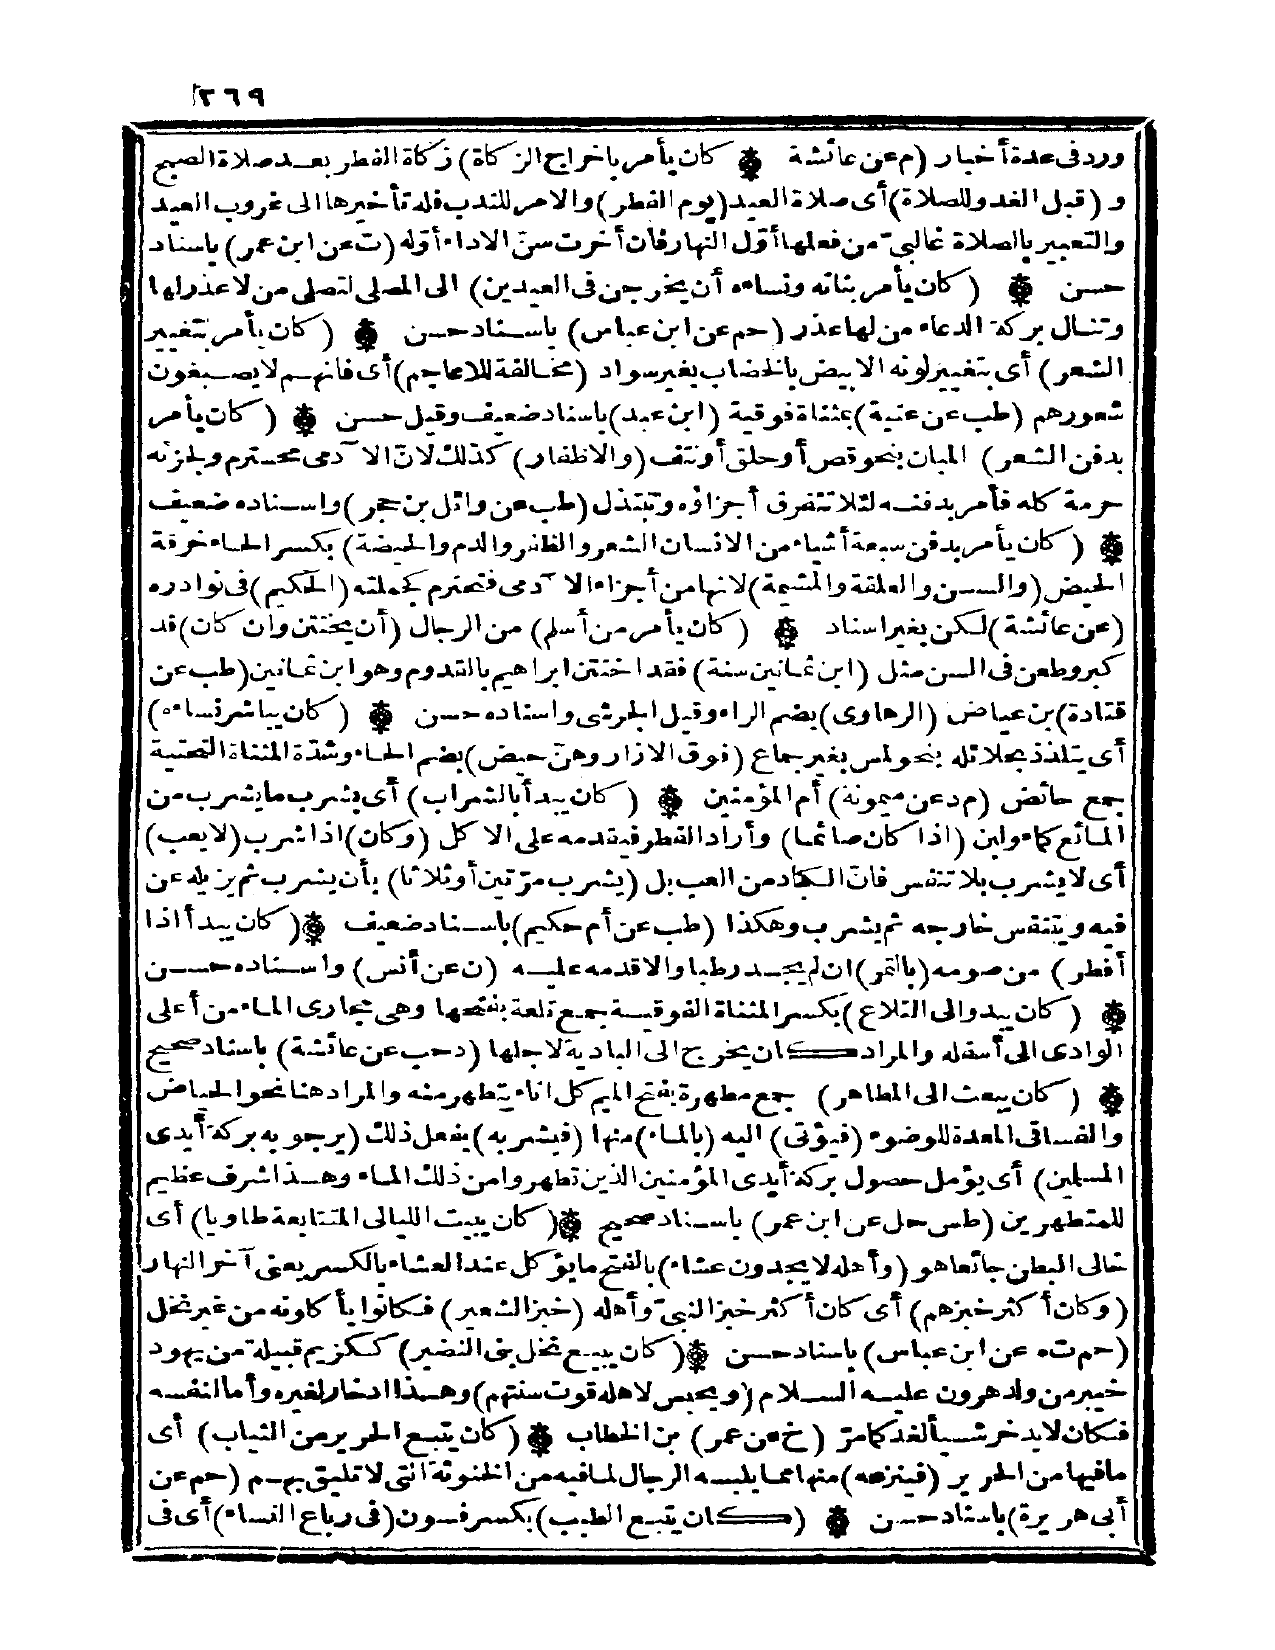 ٢٦٩
ورد في عدة أخبار (م عن عائشة ❁ كان يأمر باخراج الزكاة) زكاة الفطر بعد صلاة الصبح
و (قبل الغدو للصلاة) أى صلاة العيد (يوم الفطر) والامر للندب فله تأخيرها الى غروب العيد
والتعبير بالصلاة غالبىّ من فعلها أوّل النهار فان أخرت سنّ الاداء أوّله (ت عن ابن عمر) باسناد
حسن ❁ (كان يأمر بناته ونساءه أن يخرجن فى العيدين) الى المصلى لتصلى من لا عذر لها
وتنال بركة الدعاء من لها عذر (حم عن ابن عباس) باسناد حسن ❁ (كان يأمر بتغيير
الشعر) أى بتغيير لونه الابيض بالخضاب بغير سواد (مخالفة للاعاجم) أى فانهم لا يصبغون
شعورهم (طب عن عتبة) بمثناة فوقية (ابن عبد) باسناد ضعيف وقيل حسن ❁ (كان يأمر
بدفن الشعر) المبان بنحو قص أو حلق أو نتف (والاظفار) كذلك لانّ الآدمى محترم ولجزئه
حرمة كله فأمر بدفنه لئلا تتفرق أجزاؤه وتبتذل (طب عن وائل بن حجر) واسناده ضعيف
❁ (كان يأمر بدفن سبعة أشياء من الانسان الشعر والظفر والدم والحيضة) بكسر الحاء خرقة
الحيض (والسن والعلقة والمشيمة) لانها من أجزاء الآدمى فتحترم كجملته (الحكيم) فى نوادره
(عن عائشة) لكن بغير اسناد ❁ (كان يأمر من أسلم) من الرجال (أن يختتن وان كان) قد
كبر وطعن فى السن مثل (ابن ثمانين سنة) فقد اختتن ابراهيم بالقدوم وهو ابن ثمانين (طب عن
قتادة) بن عياض (الرهاوى) بضم الراء وقيل الجرشى واسناده حسن ❁ (كان يباشر نساءه)
أى يتلذذ بحلائله بنحو لمس بغير جماع (فوق الازار وهنّ حيض) بضم الحاء وشدّة المثناة التحتية
جمع حائض (م د عن ميمونة) أم المؤمنين ❁ (كان يبدأ بالشراب) أى بشرب ما يشرب من
المائع كماء ولبن (اذا كان صائما) وأراد الفطر فيقدمه على الاكل (وكان) اذا شرب (لا يعب)
أى لا يشرب بلا تنفس فانّ الكباد من العب بل (يشرب مرّتين أو ثلاثا) بأن يشرب ثم يزيله عن
فيه ويتنفس خارجه ثم يشرب وهكذا (طب عن أم حكيم) باسناد ضعيف ❁ (كان يبدأ اذا
أفطر) من صومه (بالتمر) ان لم يجد رطبا والا قدمه عليه (ن عن أنس) واسناده حسن
❁ (كان يبدو الى التلاع) بكسر المثناة الفوقية جمع تلعة بفتحها وهى مجارى الماء من أعلى
الوادى الى أسفله والمراد كان يخرج الى البادية لاجلها (د حب عن عائشة) باسناد صحيح
❁ (كان يبعث الى المطاهر) جمع مطهرة بفتح الميم كل اناء يتطهر منه والمراد هنا نحو الحياض
والفساقى المعدة للوضوء (فيؤتى) اليه (بالماء) منها (فيشربه) يفعل ذلك (يرجو به بركة أيدى
المسلمين) أى يؤمل حصول بركة أيدى المؤمنين الذين تطهروا من ذلك الماء وهذا شرف عظيم
للمتطهرين (طس حل عن ابن عمر) باسناد صحيح ❁ (كان يبيت الليالى المتتابعة طاويا) أى
خالى البطن جائعا هو (وأهله لا يجدون عشاء) بالفتح ما يؤكل عند العشاء بالكسر يعنى آخر النهار
(وكان أكثر خبزهم) أى كان أكثر خبز النبىّ وأهله (خبز الشعير) فكانوا يأكلونه من غير نخل
(حم ت ه عن ابن عباس) باسناد حسن ❁ (كان يبيع نخل بنى النضير) ككريم قبيلة من يهود
خيبر من ولد هرون عليه السلام (ويحبس لاهله قوت سنتهم) وهذا ادخار لغيره وأما النفسه
فكان لا يدخر شيأ لغد كما مرّ (خ عن عمر) بن الخطاب ❁ (كان يتبع الحرير من الثياب) أى
مافيها من الحرير (فينزعه) منها مما يلبسه الرجال لما فيه من الخنوثة التى لا تليق بهم (حم عن
أبى هريرة) باسناد حسن ❁ (كان يتبع الطيب) بكسر فسكون (فى رباع النساء) أى فى